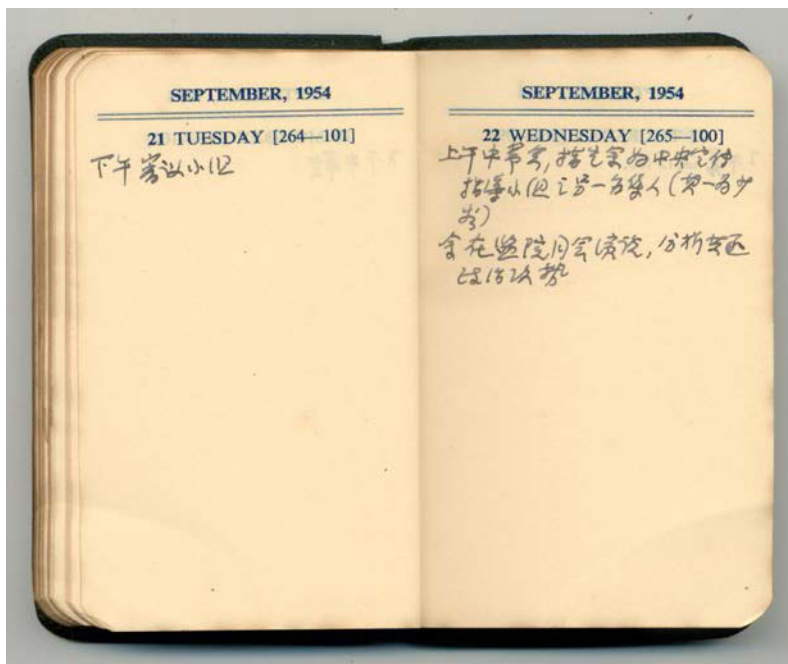 SEPTEMBER, 1954
21 TUESDAY [264—101]
下午客议小组
SEPTEMBER, 1954
22 WEDNESDAY [265—100]
上午中常会, 指定余为中央宣传
指导小组之另一召集人(其一为少
谷)
余在监院月会演说, 分析英匪
政治攻势